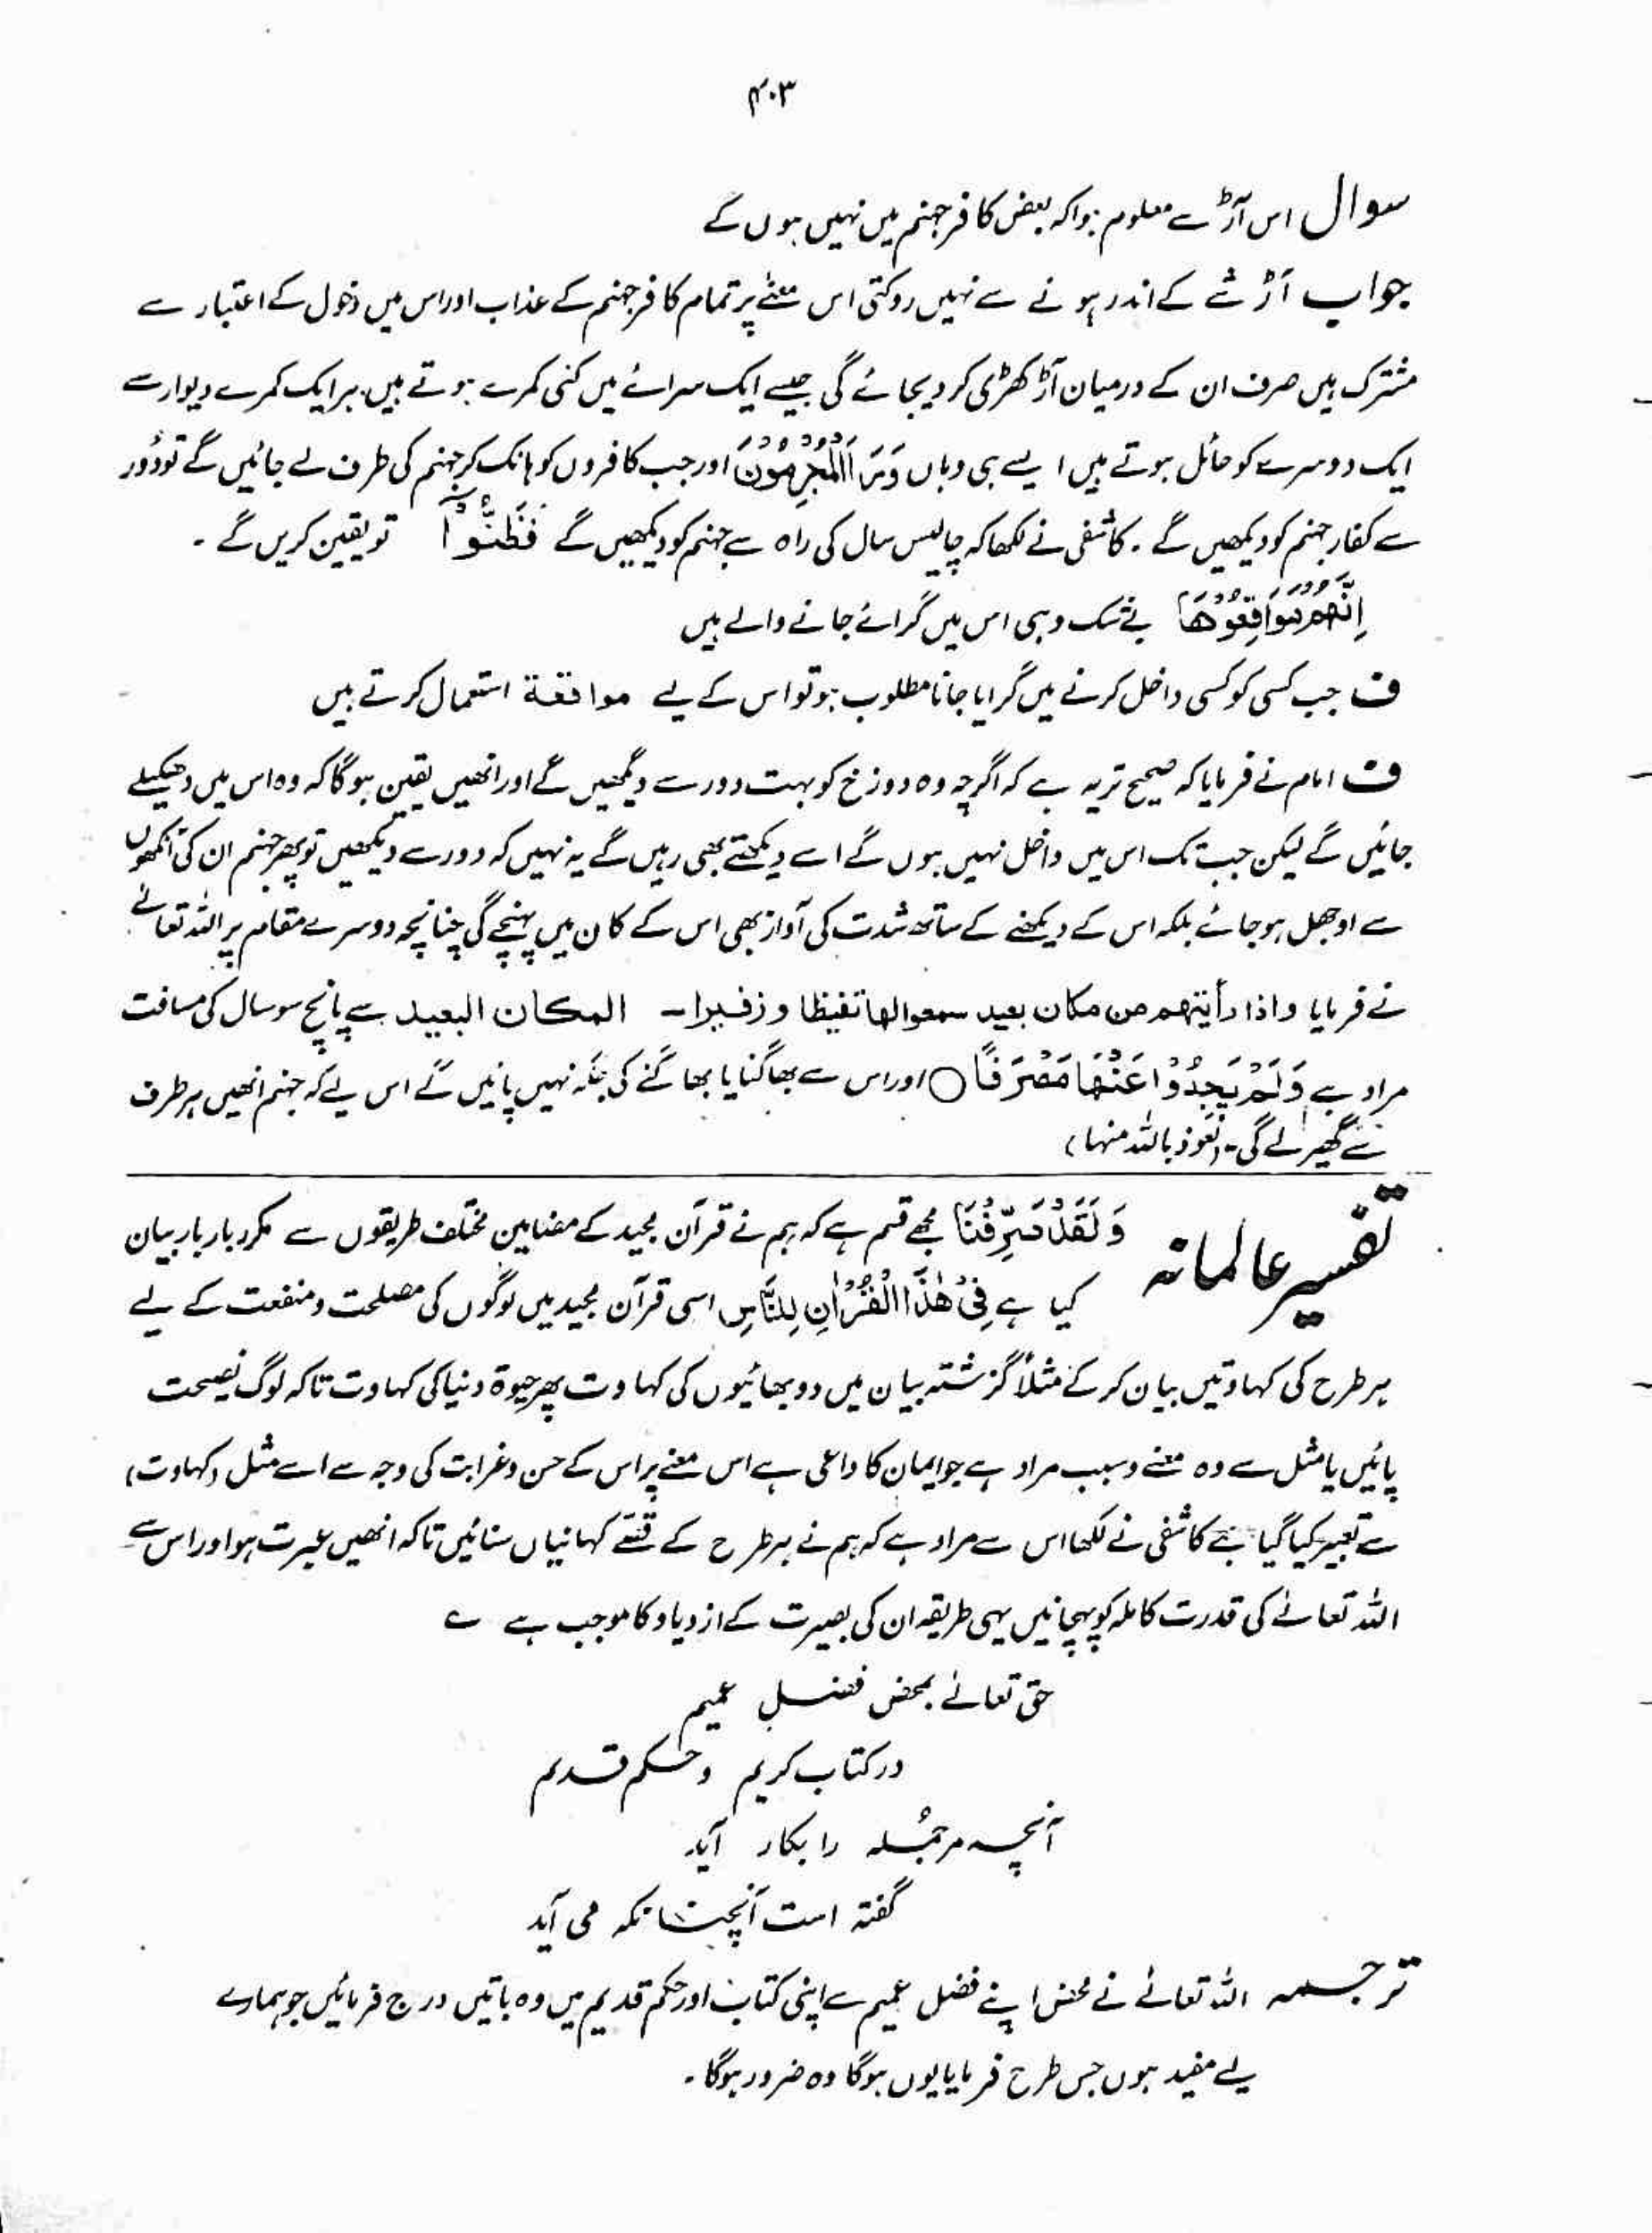 ۴۰۳
سوال اس آڑ سے معلوم ہوا کہ بعض کافر جہنم میں نہیں ہوں گے
جواب آڑ شے کے اندر ہونے سے نہیں روکتی اس معنے پر تمام کافر جہنم کے عذاب اور اس میں دخول کے اعتبار سے
مشترک ہیں صرف ان کے درمیان آڑ کھڑی کر دیجائے گی جیسے ایک سرائے میں کئی کمرے ہوتے ہیں ہر ایک کمرے دیوار سے
ایک دوسرے کو حائل ہوتے ہیں ایسے ہی وہاں وَرَاَ الْمُجْرِمُوْنَ اور جب کافروں کو ہانک کر جہنم کی طرف لے جائیں گے تو دُور
سے کفار جہنم کو دیکھیں گے ۔ کاشفی نے لکھا کہ چالیس سال کی راہ سے جہنم کو دیکھیں گے فَظَنُّوْٓا تو یقین کریں گے ۔
اِنَّهُمْ مُّوَاقِعُوْهَا بے شک وہی اس میں گرائے جانے والے ہیں
ف جب کسی کو کسی داخل کرنے میں گرایا جانا مطلوب ہو تو اس کے لیے مواقعۃ استعمال کرتے ہیں
ف امام نے فرمایا کہ صحیح تر یہ ہے کہ اگرچہ وہ دوزخ کو بہت دور سے دیکھیں گے اور انھیں یقین ہوگا کہ وہ اس میں دھکیلے
جائیں گے لیکن جب تک اس میں داخل نہیں ہوں گے اسے دیکھتے بھی رہیں گے یہ نہیں کہ دور سے دیکھیں تو پھر جہنم ان کی آنکھوں
سے اوجھل ہو جائے بلکہ اس کے دیکھنے کے ساتھ شدت کی آواز بھی اس کے کان میں پہنچے گی چنانچہ دوسرے مقام پر اللہ تعالےٰ
نے فرمایا واذا رأیتھم من مکان بعید سمعوا لھا تغیظا و زفیرا ۔ المکان البعید سے پانچ سو سال کی مسافت
مراد ہے وَلَمْ يَجِدُوْا عَنْهَا مَصْرِفًا ○ اور اس سے بھاگنا یا بھاگنے کی جگہ نہیں پائیں گے اس لیے کہ جہنم انھیں ہر طرف
سے گھیر لے گی ۔ (نعوذ باللہ منہا)
تفسیر عالمانہ وَلَقَدْ صَرَّفْنَا مجھے قسم ہے کہ ہم نے قرآن مجید کے مضامین مختلف طریقوں سے مکرر بار بار بیان
کیا ہے فِیْ هٰذَا الْقُرْاٰنِ لِلنَّاسِ اسی قرآن مجید میں لوگوں کی مصلحت و منفعت کے لیے
ہر طرح کی کہاوتیں بیان کر کے مثلاً گزشتہ بیان میں دو بھائیوں کی کہاوت پھر حیوۃ دنیا کی کہاوت تاکہ لوگ نصیحت
پائیں یا مثل سے وہ معنے و سبب مراد ہے جو ایمان کا داعی ہے اس معنے پر اس کے حسن و غرابت کی وجہ سے اسے مثل (کہاوت)
سے تعبیر کیا گیا ہے کاشفی نے لکھا اس سے مراد ہے کہ ہم نے ہر طرح کے قصے کہانیاں سنائیں تاکہ انھیں عبرت ہو اور اس سے
اللہ تعالےٰ کی قدرت کاملہ کو پہچانیں یہی طریقہ ان کی بصیرت کے ازدیاد کا موجب ہے ے
حق تعالےٰ بمحض فضل عمیم
در کتاب کریم و حکم قدیم
آنچہ مر جُملہ را بکار آید
گفتہ است آنچنانکہ می آید
ترجمہ اللہ تعالےٰ نے محض اپنے فضل عمیم سے اپنی کتاب اور حکم قدیم میں وہ باتیں درج فرمائیں جو ہمارے
لیے مفید ہوں جس طرح فرمایا یوں ہوگا وہ ضرور ہوگا ۔